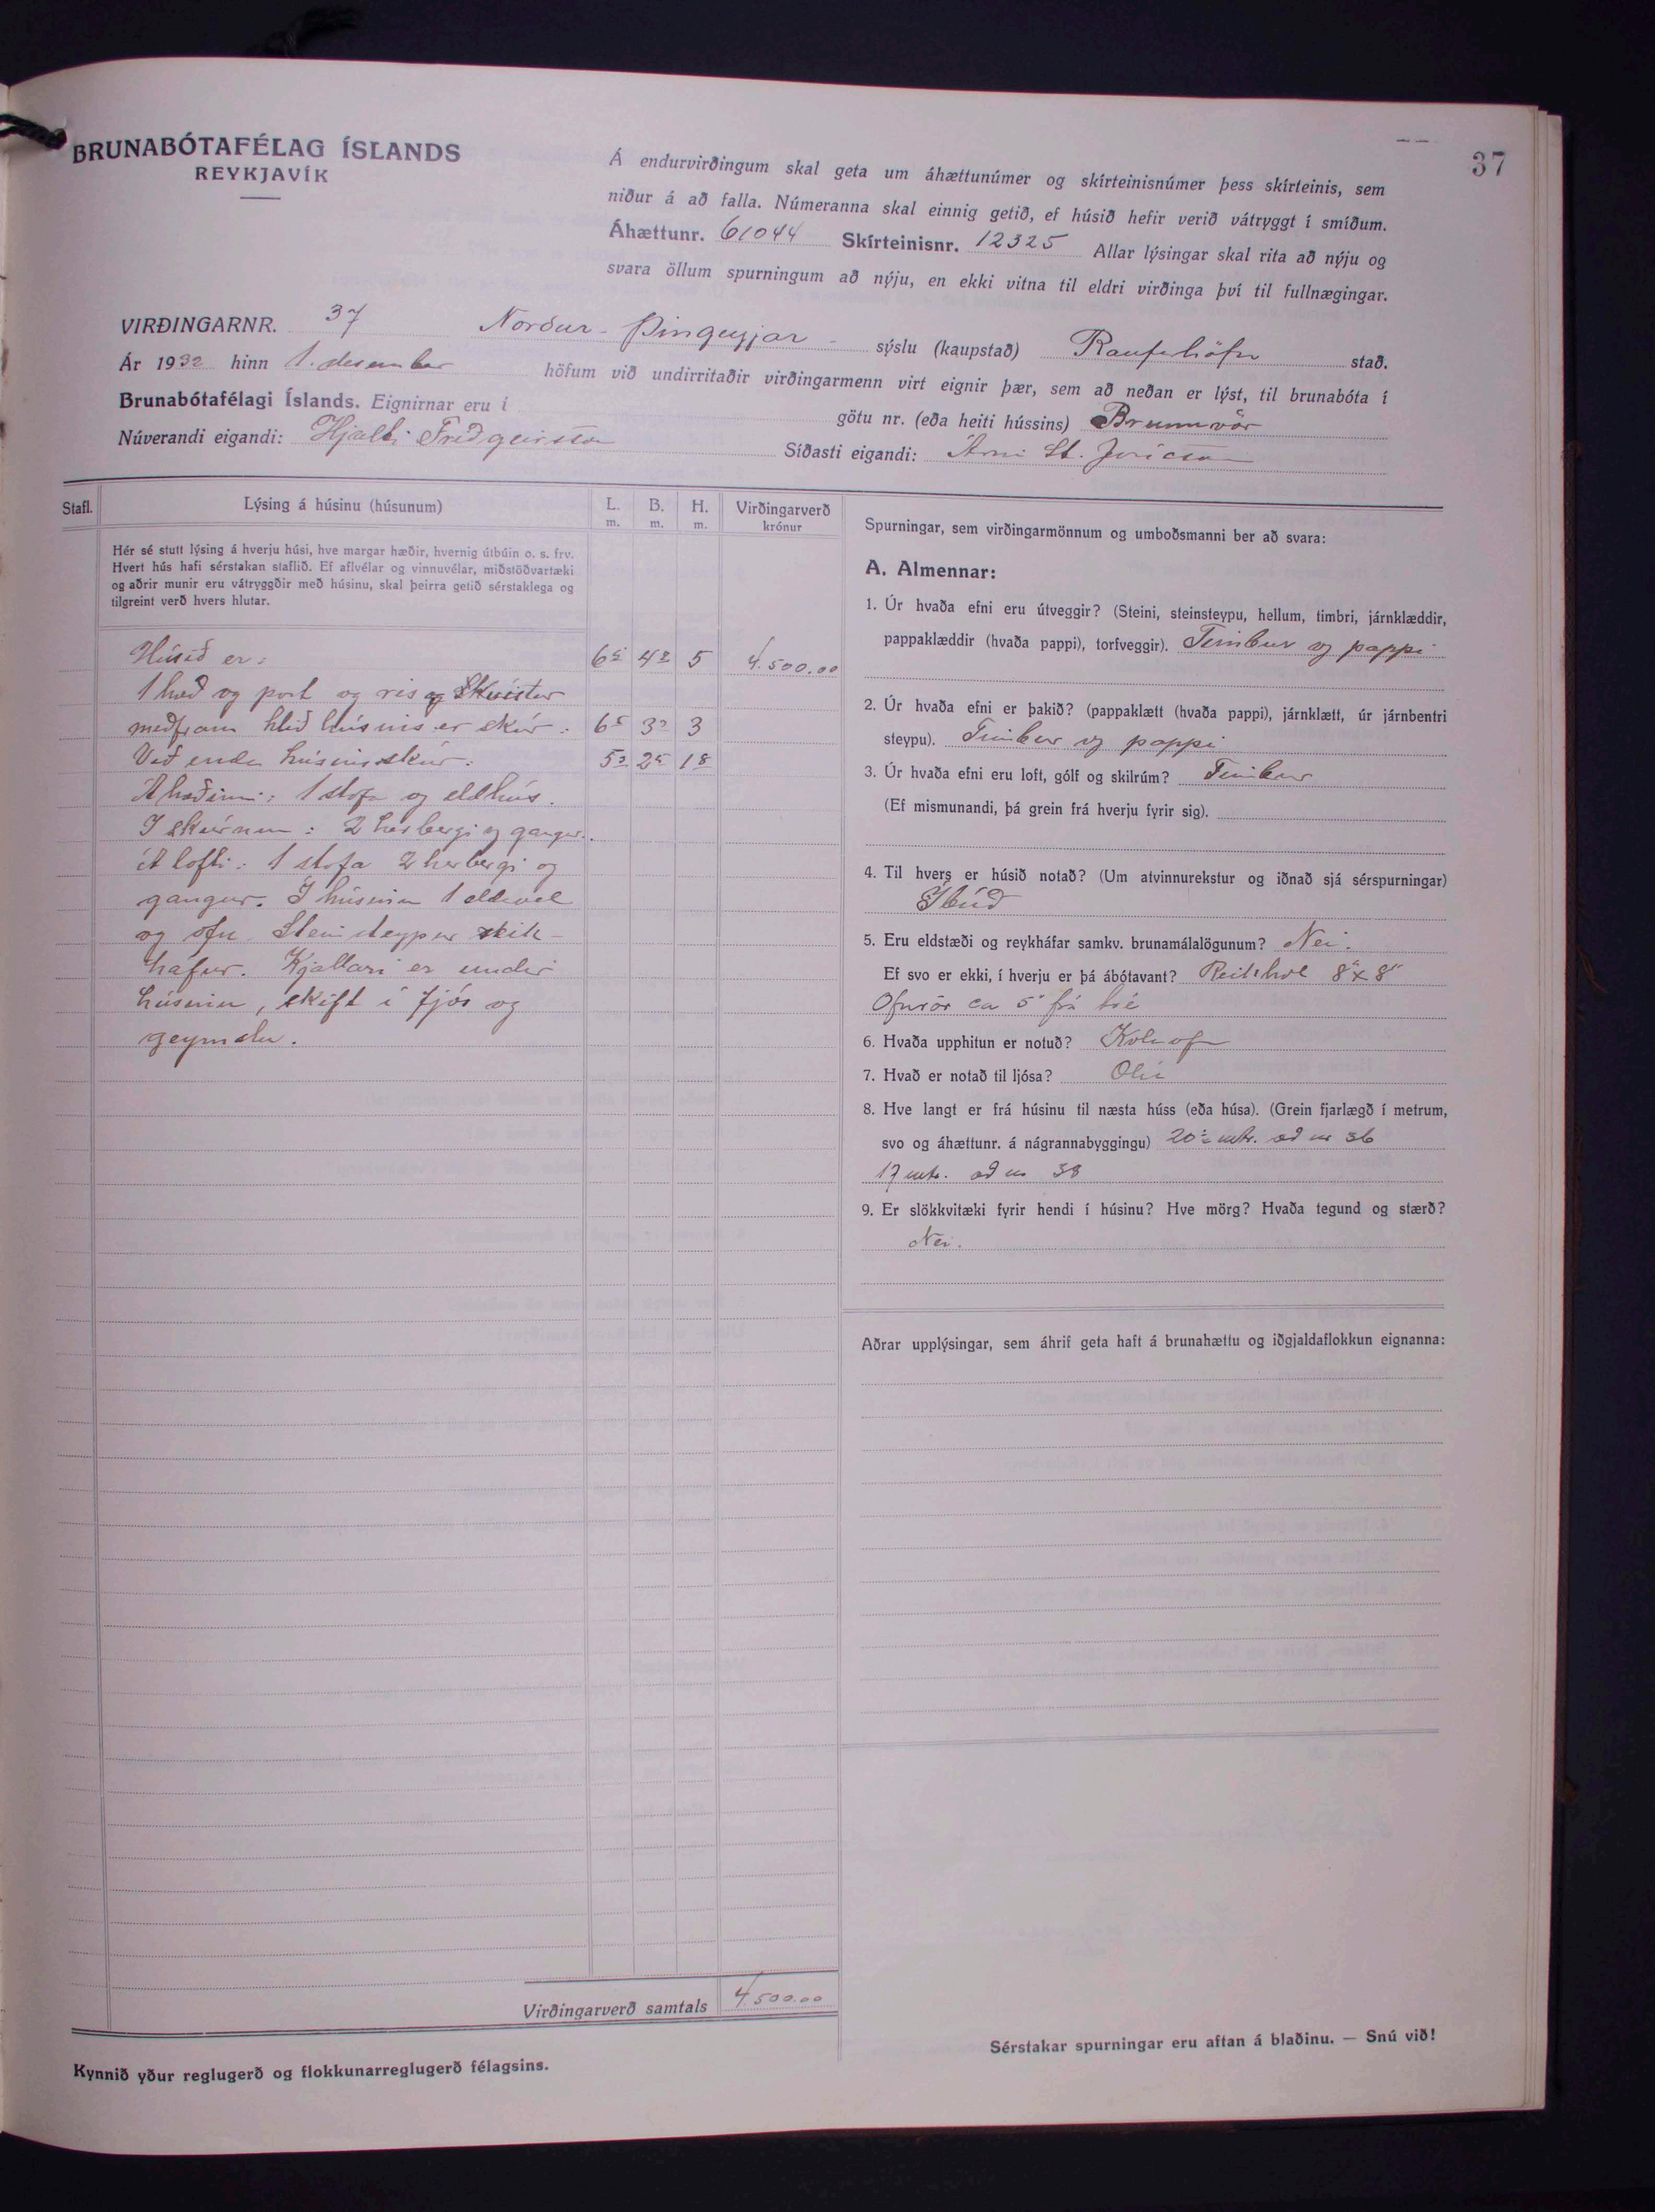 37
BRUNABÓTAFÉLAG ÍSLANDS
REYKJAVÍK
Á endurvirðingum skal geta um áhættunúmer og skírteinisnúmer þess skírteinis, sem
niður á að falla. Númeranna skal einnig getið, ef húsið hefir verið vátryggt í smíðum.
Áhættunr. 61044 Skírteinisnr. 12325 Allar lýsingar skal rita að nýju og
svara öllum spurningum að nýju, en ekki vitna til eldri virðinga því til fullnægingar.
VIRÐINGARNR. 37 Norður-Þingeyjar- sýslu (kaupstað) Raufarhöfn stað.
Ár 1932 hinn 1. desember höfum við undirritaðir virðingarmenn virt eignir þær, sem að neðan er lýst, til brunabóta í
Brunabótafélagi Íslands. Eignirnar eru í götu nr. (eða heiti hússins) Brunnvör
Núverandi eigandi: Hjalti Friðgeirsson Síðasti eigandi: Árni St.
Stafl. Lýsing á húsinu (húsunum) L. m. B. m. H. m. Virðingarverð krónur
Hér sé stutt lýsing á hverju húsi, hve margar hæðir, hvernig útbúin o. s. frv.
Hvert hús hafi sérstakan staflið. Ef aflvélar og vinnuvélar, miðstöðvartæki
og aðrir munir eru vátryggðir með húsinu, skal þeirra getið sérstaklega og
tilgreint verð hvers hlutar.
Húsið er: 5 4.500.00
1 hæð og port og ris og Skvístur
meðfram hlið húsins er skúr: 3
Við enda húsins skúr: 1 8
Á hæðinni: 1 stofa og eldhús.
Í skúrnum: 2 herbergi og gangur.
Á lofti: 1 stofa 2 herbergi og
gangur. Í húsinu 1 eldavél
og ofn. Steinsteypur reik-
háfur. Kjallari er undir
húsinu, skift í fjós og
geymslu.
Virðingarverð samtals 4.500.00
Kynnið yður reglugerð og flokkunarreglugerð félagsins.
Spurningar, sem virðingarmönnum og umboðsmanni ber að svara:
A. Almennar:
1. Úr hvaða efni eru útveggir? (Steini, steinsteypu, hellum, timbri, járnklæddir,
pappaklæddir (hvaða pappi), torfveggir). Timbur og pappi
2. Úr hvaða efni er þakið? (pappaklætt (hvaða pappi), járnklætt, úr járnbentri
steypu). Timbur og pappi
3. Úr hvaða efni eru loft, gólf og skilrúm? Timbur
(Ef mismunandi, þá grein frá hverju fyrir sig).
4. Til hvers er húsið notað? (Um atvinnurekstur og iðnað sjá sérspurningar)
Íbúð
5. Eru eldstæði og reykháfar samkv. brunamálalögunum? Nei.
Ef svo er ekki, í hverju er þá ábótavant? 8"x8"
Ofnrör ca 5" frá tré
6. Hvaða upphitun er notuð? Kolaofn
7. Hvað er notað til ljósa? Olía
8. Hve langt er frá húsinu til næsta húss (eða húsa). (Grein fjarlægð í metrum,
svo og áhættunr. á nágrannabyggingu) mtr. að nr 36
17 mtr. að nr 38
9. Er slökkvitæki fyrir hendi í húsinu? Hve mörg? Hvaða tegund og stærð?
Nei.
Aðrar upplýsingar, sem áhrif geta haft á brunahættu og iðgjaldaflokkun eignanna:
Sérstakar spurningar eru aftan á blaðinu. — Snú við!